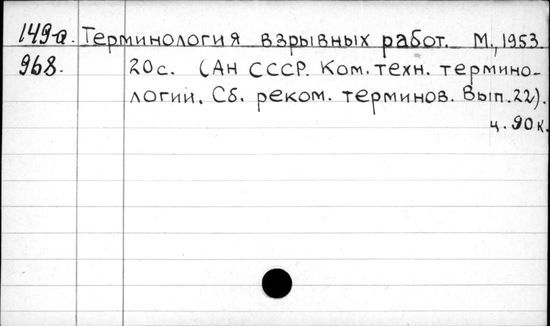 149-а. Терминология взрывных работ. М., 1953.
968. 20с. (АН СССР. Ком. техн. термино-
логии. Сб. реком. терминов. Вып. 22).
ц. 90к.